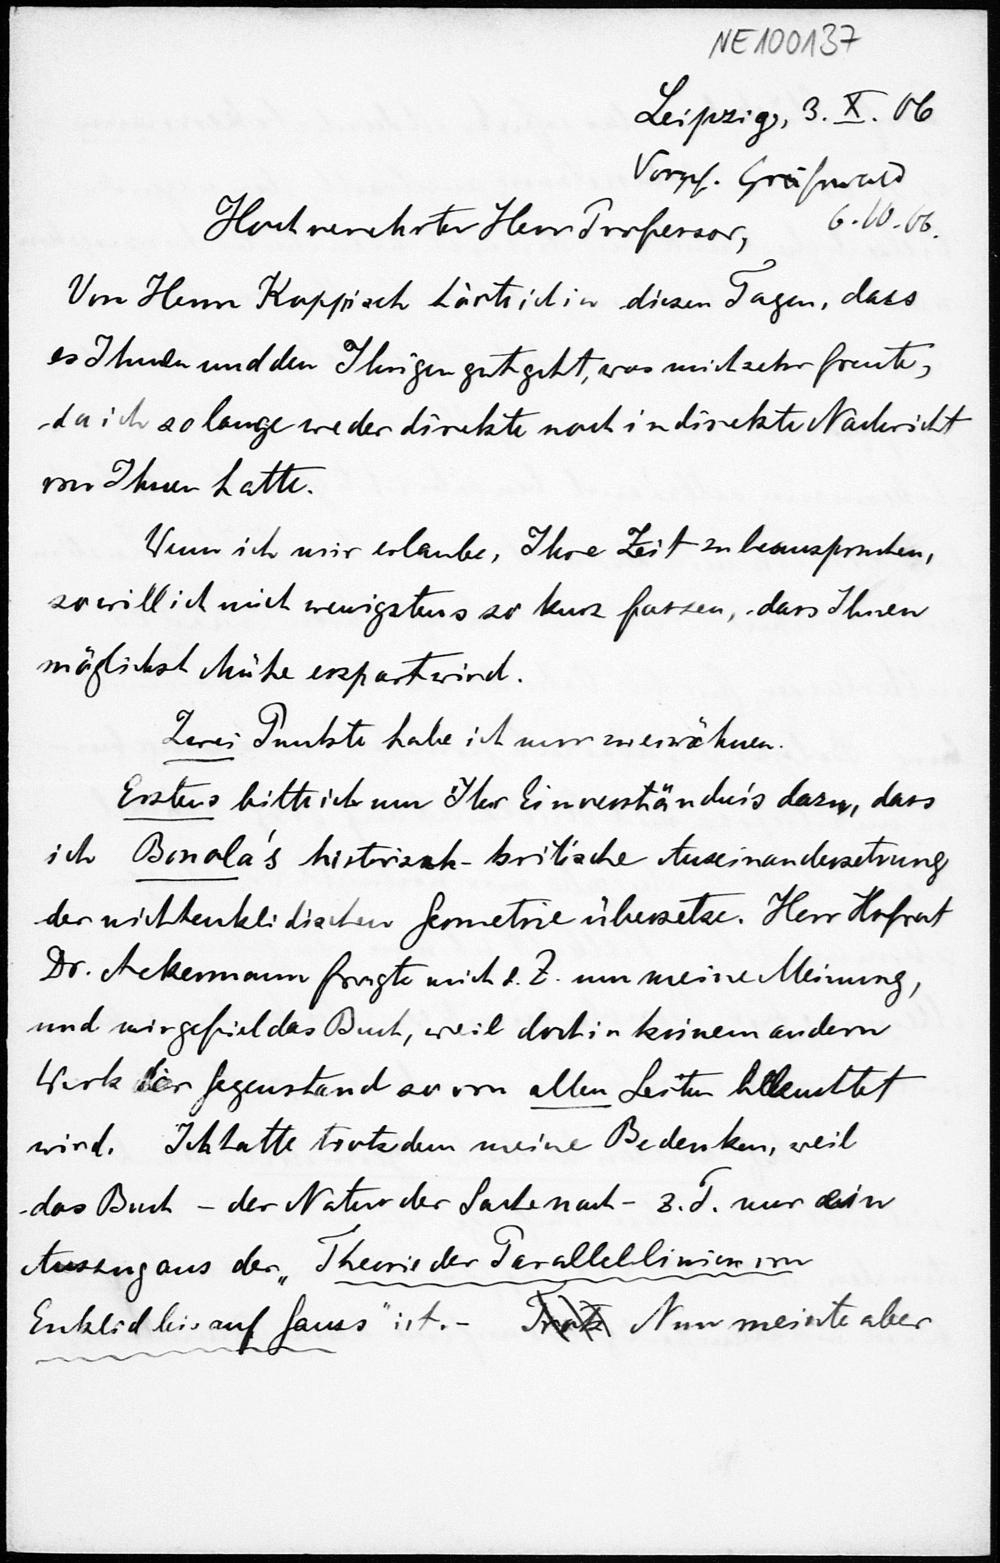 NE100137
Leipzig, 3. X. 06
Greifswald
6.10.06.
Hochverehrter Herr Professor,
Von Herrn Koppisch hörte ich in diesen Tagen, dass
es Ihnen und den Ihrigen gut geht, was mich sehr freute,
da ich so lange weder direkte noch indirekte Nachricht
von Ihnen hatte.
Wenn ich mir erlaube, Ihre Zeit zu beanspruchen,
so will ich mich wenigstens so kurz fassen, dass Ihnen
möglichst Mühe erspart wird.
Zwei Punkte habe ich nur zu erwähnen.
Erstens bitte ich um Ihr Einverständnis dazu, dass
ich Bonola's historisch-kritische Auseinandersetzung
der nichteuklidischen Geometrie übersetze. Herr Hofrat
Dr. Ackermann fragte mich s. Z. um meine Meinung,
und mir gefiel das Buch, weil doch in keinem andern
Werk der Gegenstand so von allen Seiten beleuchtet
wird. Ich hatte trotzdem meine Bedenken, weil
das Buch – der Natur der Sache nach – z. T. nur ein
Auszug aus der „Theorie der Parallellinien von
Euklid bis auf Gauss" ist. – Trotz Nun meinte aber